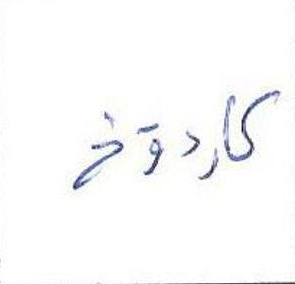 کاردوخ